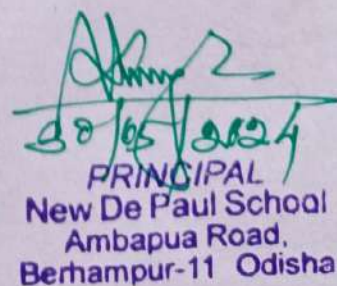 30/05/2024
PRINCIPAL
New De Paul School
Ambapua Road,
Berhampur-11 Odisha